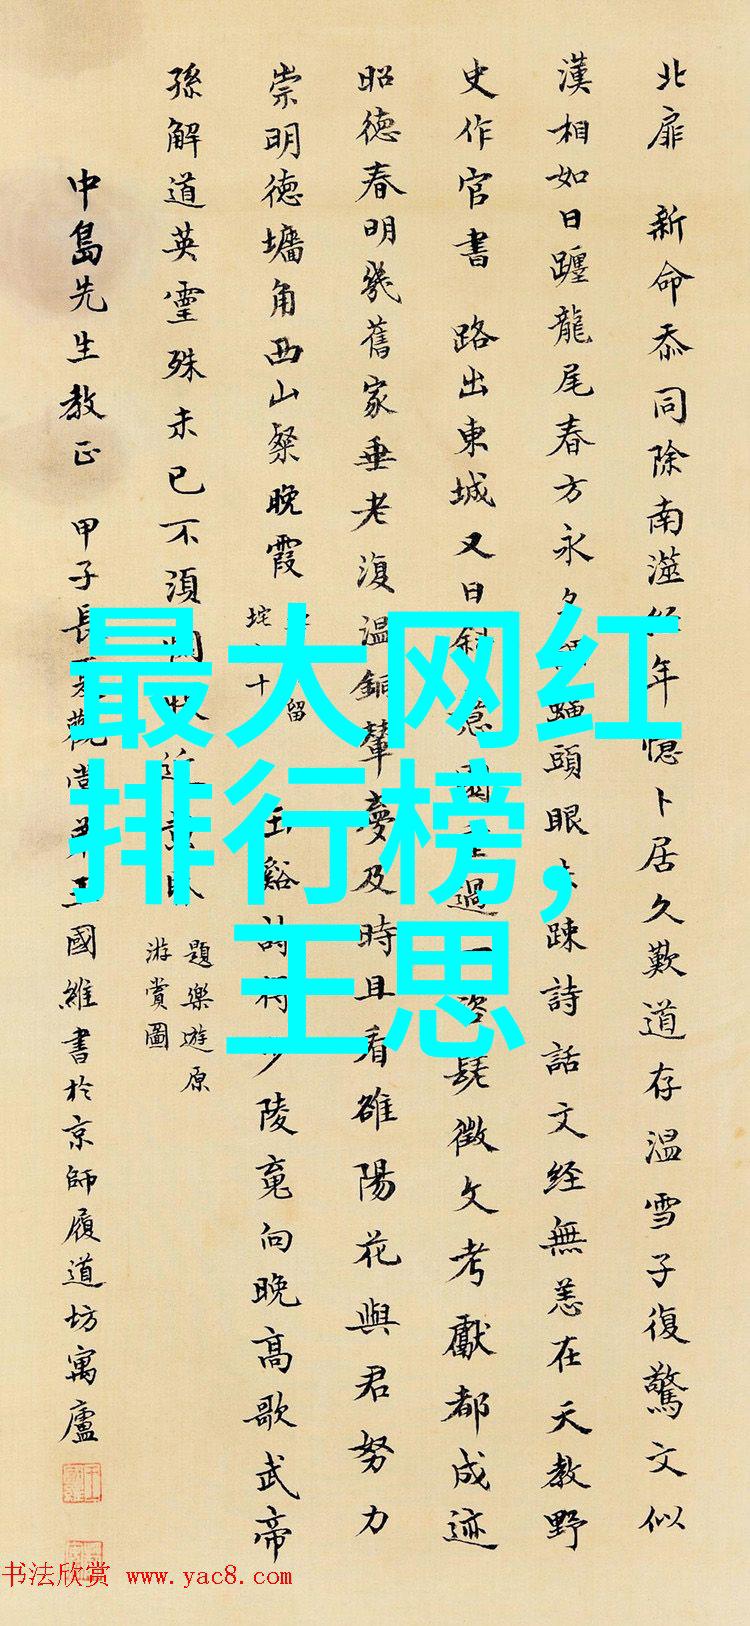 北扉 新命忝同除南澨經年憶卜居久歎道存温雪子復驚文似
漢相如日躔龍尾春方永頭眼疎詩話文経無恙在天教野
史作官書 路出東城又日斜過一咨髦徵文考獻都成迹
昭德春明幾舊家垂老復温銅輦夢及時且看雒陽花與君努力
崇明德墉角西山粲晚霞
留
十
玉谿詩得少陵竟向晚高歌武帝
孫解道英靈殊未已不須近
題樂遊原
游賞圖
中島先生教正 甲子長觀王國維書於京師履道坊寓廬
最大网红
排行榜,
王思
书法欣赏 www.yac8.com